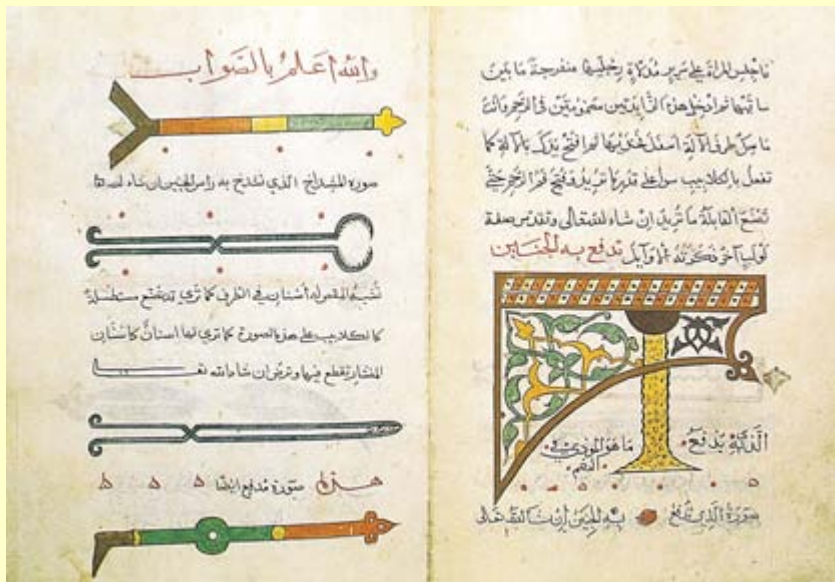 فاجلس المراة علي سرير مدلاة رجليها منفرجة ما بين
ساقيها ثم ادخل هذه الزايدتين مضمومتين في الرحم وانت
ماسك طرف الآلة اسفل فخذيها ثم افتح يدك بالآلة كما
تفعل بالكلاليب سوا علي قدر ما تريد فتح فم الرحم حتي
تصنع القابلة ما تريد ان شاء الله تعالي
لولب آخر ذكرته الاوايل تدفع به الجنين
يدفع ما هو الموذي في
الفم
صورة الذي تدفع به الجنين ان شا الله تعالي
والله اعلم بالصواب
صورة المشداخ الذي تشدخ به راس الجنين ان شاء الله
تشبه المقص له أسنان في الطرف كما تري وقد تصنع مستطيلة
كالكلاليب علي هذه الصورة كما تري لها اسنان كاسنان
المنشار يقطع بها وترض ان شاء الله تعا
هذه صورة مدفع ايضا